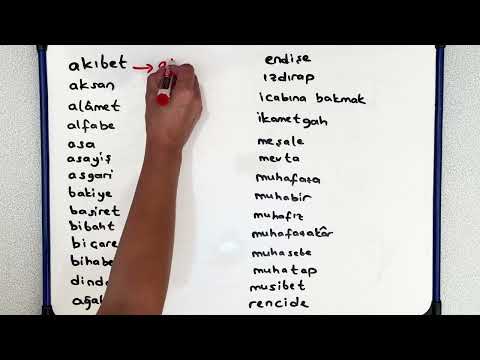 akıbet →
aksan
alâmet
alfabe
asa
asayiş
asgari
bakiye
basiret
bibaht
biçare
bihabe
dinda
endişe
ızdırap
icabına bakmak
ikametgah
meşale
mevta
muhafaza
muhabir
muhafız
muhafazakâr
muhasebe
muhatap
musibet
rencide